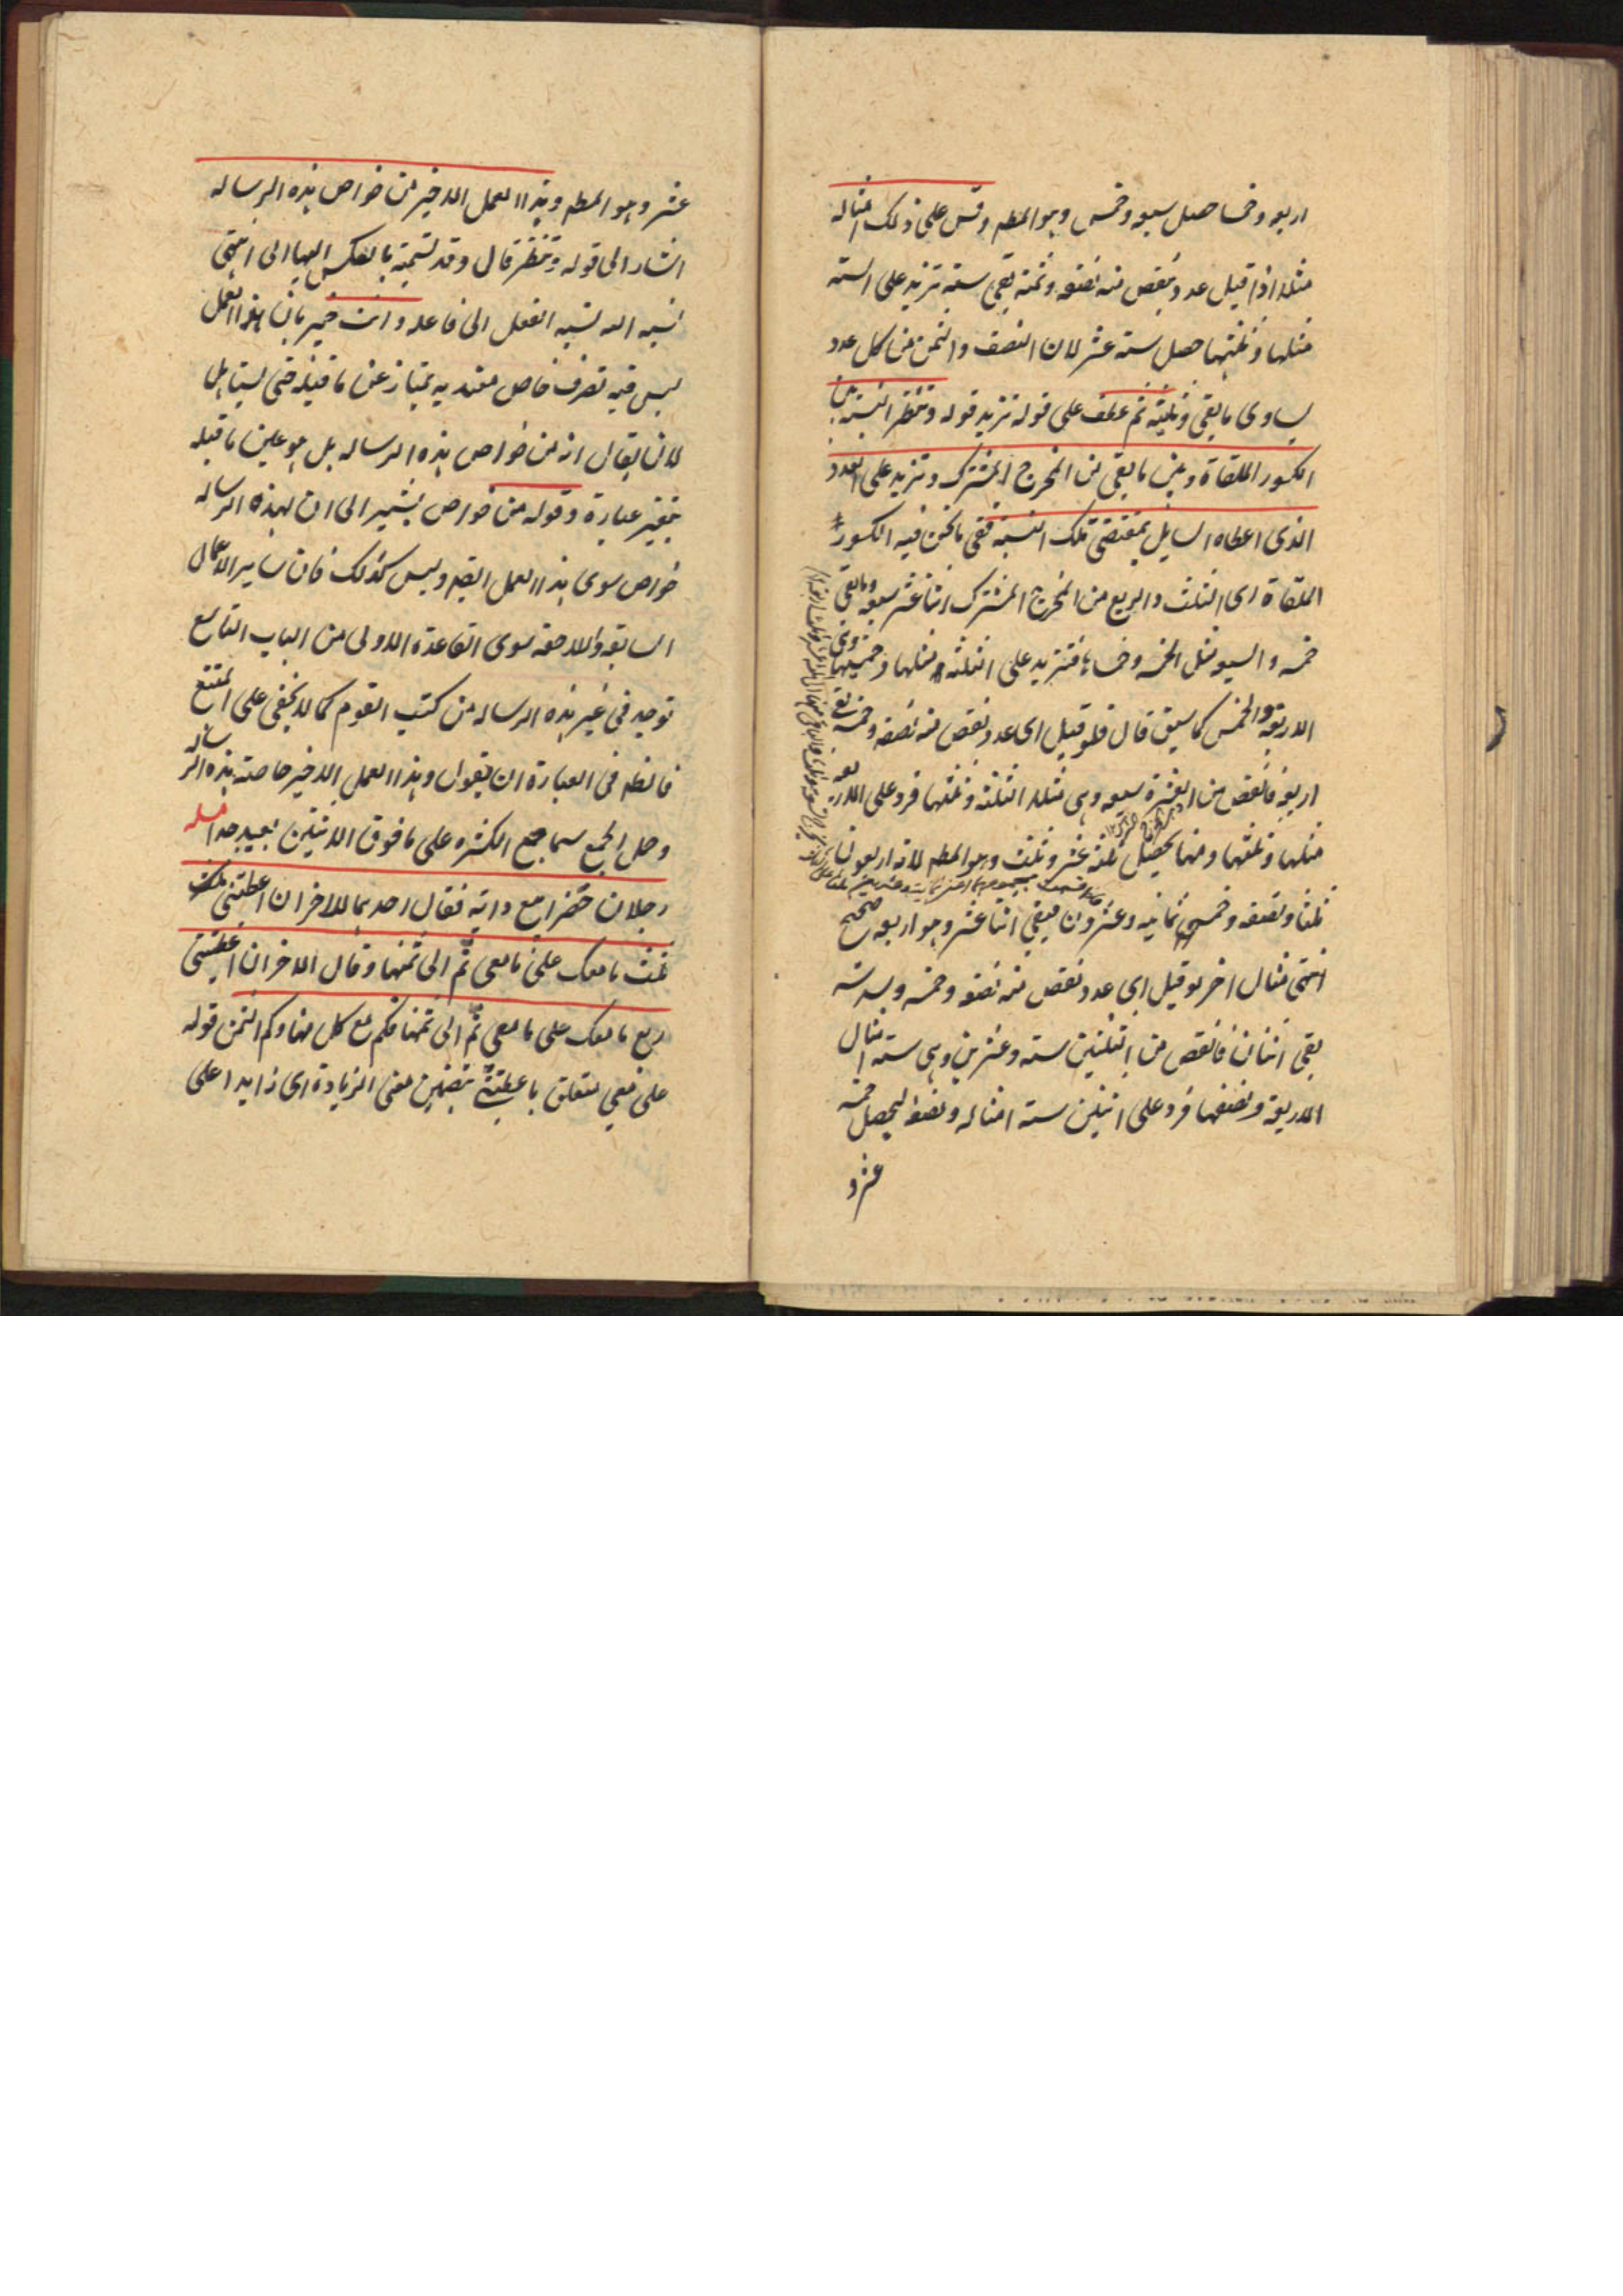 اربعه وخمسا حصل سبعه وخمس وهو المطه وقس على ذلك امثاله
مثلا اذا قيل عدد نقص منه نصفه وثمنه بقى سته تزيد على السته
مثلها وثلثيها حصل سته عشر لان النصف والثمن من كل عدد
يساوى ما بقى وثلثيه ثم عطف على قوله تزيد قوله وتنظر النسبة بين
الكسور الملقاة وبين ما بقى من المخرج المشترك وتزيد على العدد
الذى اعطاه السايل بمقتضى تلك النسبة ففى ما نحن فيه الكسور
الملقاة اى الثلث والربع من المخرج المشترك اثنا عشر سبعه وما بقى
خمسه والسبعه مثل الخمسه وخمساها فتزيد على الثلثه مثلها وخمسيها
الاربعه والخمس كما سبق قال فلو قيل اى عدد نقص منه نصفه وخمسه بقى
اربعه فانقص من العشرة سبعه وهى مثلا الثلثة وثلثها فزد على الاربعه
مثلها وثلثها ومنها يحصل ثلثه عشر وثلث وهو المطه لانه اربعون
ثلثا ونصفه وخمسه ثمانيه وعشرون فيبقى اثنا عشر وهو اربعه صحيح
انتهى مثال اخر لو قيل اى عدد نقص منه نصفه وخمسه وسدسه
بقى اثنان فانقص من الثلثين سته وعشرين وهى سته امثال
الاربعة ونصفها فزد على اثنين سته امثاله ونصفه ليحصل خمسه
عشر و
عشر وهو المطه وهذا العمل الاخير من خواص هذه الرساله
اشار الى قوله وتنظر قال وقد تسميته بالعكس اليها الى انتهى
نسبه الله نسبه الفعل الى فاعله وانت خبير بان هذا العمل
ليس فيه تصرف خاص معتد به يمتاز عن ما قبله حتى يستاهل
لان يقال انه من خواص هذه الرساله بل هو عين ما قبله
بتغيير عبارة وقوله من خواص يشير الى ان لهذه الرساله
خواص سوى هذا العمل ايضه وليس كذلك فان ساير الاعمال
السابقه واللاحقه سوى القاعدة الاولى من الباب التاسع
توجد فى غير هذه الرساله من كتب القوم كما لا يخفى على المتتبع
فالظه فى العبارة ان يقول وهذا العمل الاخير خاصته هذه الرساله
وحمل الجمع سيما جمع الكثره على ما فوق الاثنين بعيد جدا مسله
رجلان حضرا مع دابة فقال احدهما للاخر ان اعطيتنى ثلث
ثلث ما معك على ما معى تم الى ثمنها وقال الاخر ان اعطيتنى
ربع ما معك على ما معى تم الى ثمنها فكم مع كل منها وكم الثمن قوله
على معى متعلق باعطيتنى بتضمين معنى الزيادة اى زايدا على